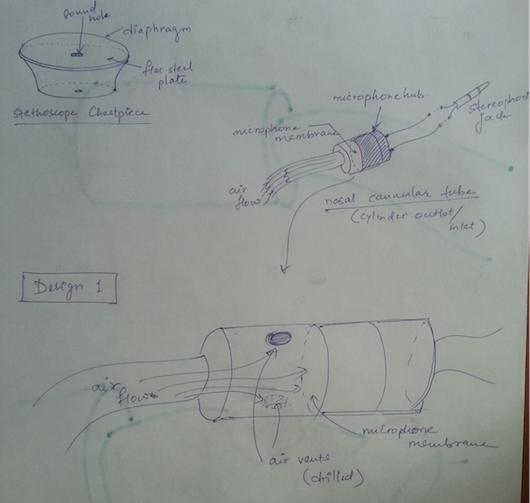 sound
hole
diaphragm
flat steel
plate
Stethoscope Chestpiece
microphone hub
stereophonic
jack
microphone
membrane
air
flow
nasal cannular tube
(cylinder outlet/
inlet)
Design 1
air
flow
microphone
membrane
air vents
(drilled)